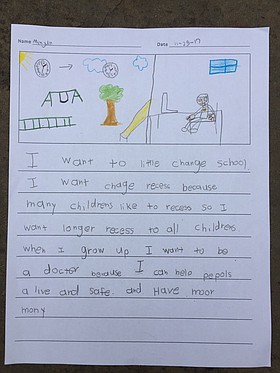 Name
Date 11-29-17
I want to little change school.
I want chage recess because
many childrens like to recess so I
want longer recess to all childrens
when I grow up I want to be
a doctor because I can help pepols
a live and safe. and Have moor
mony